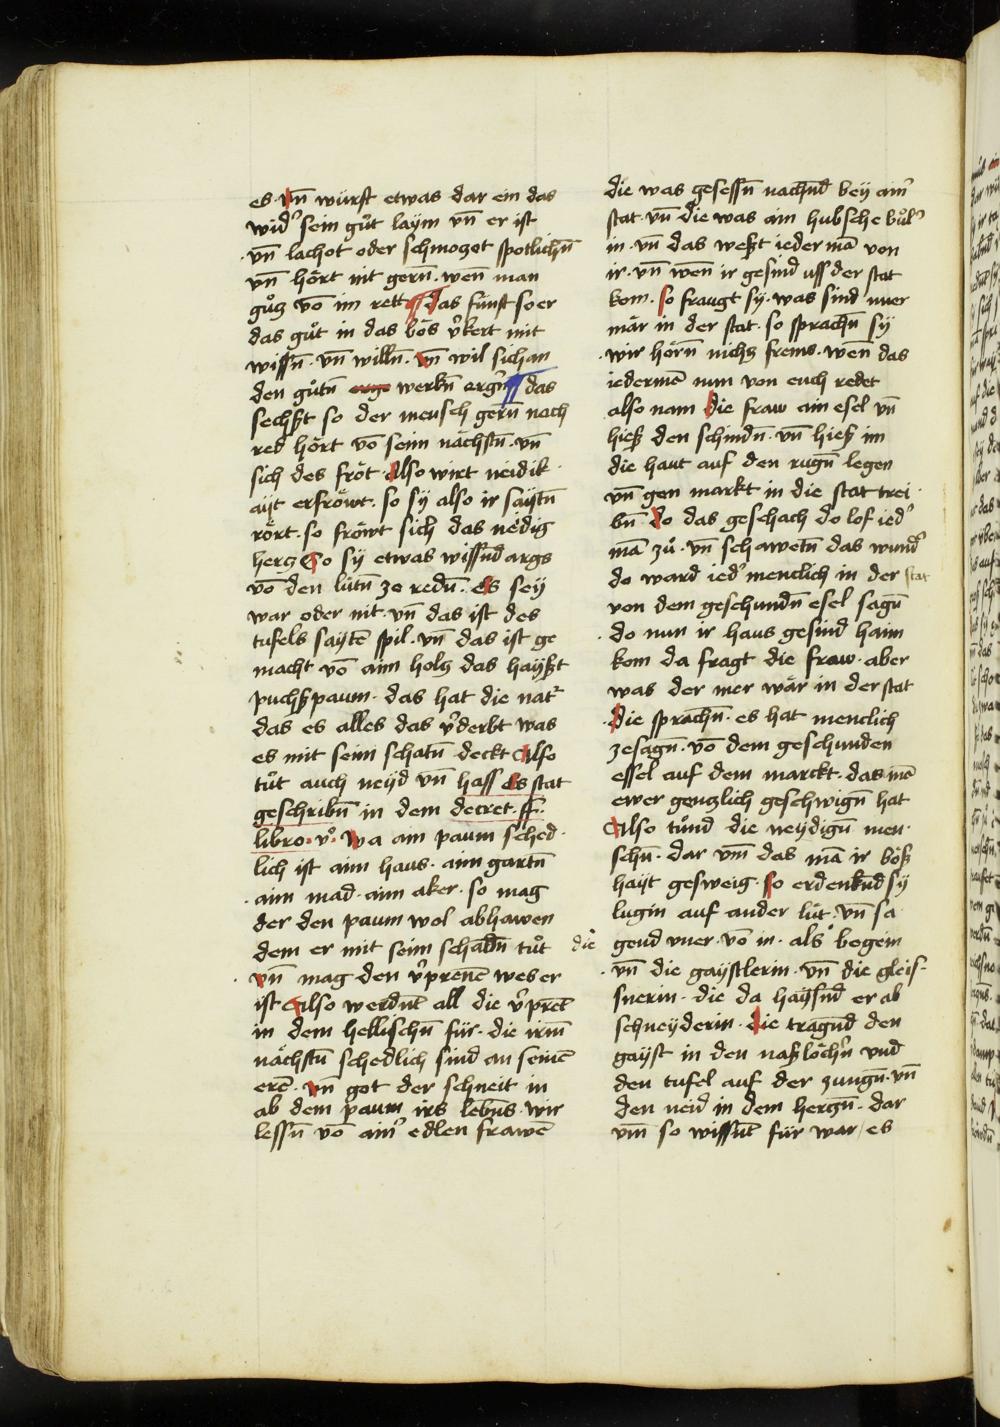 es · vn̄ würft etwas dar ein das
wid᷑ sein gůt laÿm vn̄ er ist
· vn̄ lachot oder schmozot spotlichn̄
vn̄ hört nit gern̄ · wen̄ man
gůtz vō im rett das fünft so er
das gůt in das bös v᷑kert mit
wissn̄ · vn̄ willn̄ · vn̄ wil sich an
den gůtn̄ werkn̄ erg᷑n̄ das
sechst so der mensch gern̄ nach
red hört vō seim nächstn̄ · vn̄
sich des fröt · Also wirt neidik ·
ait erfröwt · so sy also ir saÿtn̄
rört · so fröwt sich das neidig
hertz So sy etwas wissn̄d args
vō den lütn̄ ze redn̄ · es sey
war oder nit · vn̄ das ist des
tufels saÿtē spil · vn̄ das ist ge
macht vō aim holtz das haÿßt
puchßpaum · das hat die nat᷑
das es alles das v᷑derbt was
es mit seim schatn̄ deckt Also
tůt auch neÿd vn̄ hass es stat
geschribn̄ in dem decret · ff ·
libro · v° · Wa ain paum sched ·
lich ist aim haus · aim gartn̄
· aim mad · aim aker · so mag
der den paum wol abhawen
dem er mit seim schadn̄ tůt
· vn̄ mag den v᷑prenē wes er
ist Also werdnt all die v᷑prēt
in dem hellischn̄ für · die irm̄
nächstn̄ schedlich sind an seinē
erē · vn̄ got der schneit in
ab dem paum irs lebn̄s · wir
lessn̄ vō ain᷑ edlen frawē
die was gesessn̄ nachn̄d beÿ ain᷑
stat · vn̄ die was ain hubsche bůl᷑
in · vn̄ das weßt iederma᷑ von
ir · vn̄ wen̄ ir gesind uss der stat
kom · so fraugt sy · was sind nuer
mär in der stat · so sprachn̄ sy
· wir hörn̄ nichtz frems · wen̄ das
iedermē nun von euch redet
also nam die fraw ain esel vn̄
hieß den schindn̄ · vn̄ hieß im
die haut auf den rugn̄ legen
vn̄ gen markt in die stat trei ·
bn̄ do das geschach do lof ied᷑
mā zů · vn̄ schawetn̄ das wund᷑
do ward ied᷑ menclich in der stat
von dem geschundn̄ esel sagn̄
· do nun ir haus gesind haim
kom da fragt die fraw · aber
was der mer wär in der stat
· die sprachn̄ · es hat menclich
zesagn̄ · vō dem geschunden
essel auf dem marckt · das mē
ewer gentzlich geschwign̄ hat
Also tůnd die neÿdign̄ men ·
schn̄ · dar vm̄ das mā ir böß
haÿt gesweig · so erdenknd sy
lugin auf ander lüt · vn̄ sa
die gend vner · vō in · als begein
· vn̄ die gaÿstlerin · vn̄ die gleis-
snerin · die da haÿsn̄d er ab
schneÿderin · die tragn̄d den
gaÿst in den naßlöch᷑n vnd
den tufel auf der zungn̄ · vn̄
den neid in dem hertzn̄ · dar
vm̄ so wissn̄t für war es